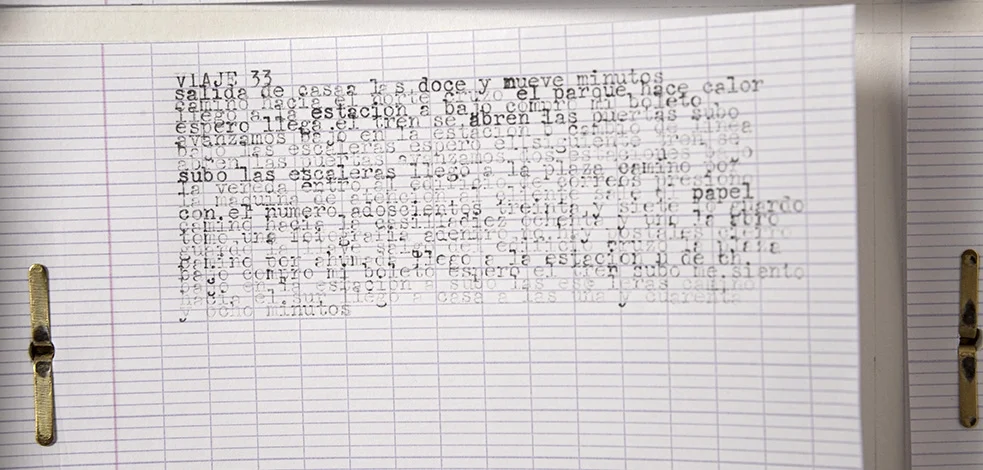 VIAJE 33
salida de casaa las doce y nueve minutos
camino hacia el norte cruzo el parque hace calor
llego a la estacion a bajo compro mi boleto
espero llega el tren se abren las puertas subo
avanzamos bajo en la estacion u cambio de linea
bajo las escaleras espero elsiguiente tren se
abren las puertas avanzamos dos estaciones bajo
subo las escaleras llego a la plaza camino por
la vereda entro al edificio de correos presiono
la maquina de atencion papel
con el numero adoscientos treinta y siete lo guardo
camino hacia la y uno la abro
tomo una fotografia adentro postales cierro
salgo edificio cruzo la plaza
camino por ahumada llego a la estacion u de ch.
bajo compro mi boleto espero el tren subo me siento
bajo en la estacion a subo las esc leras camino
hacia el sur llego a casa a las una y cuarenta
y ocho minutos